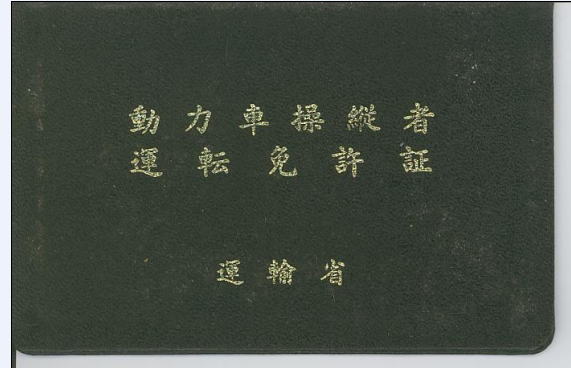 動力車操縦者
運転免許証
運輸省